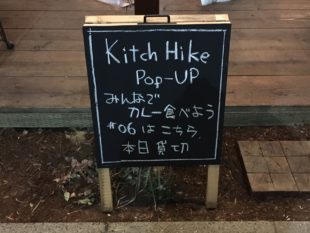 Kitch Hike
Pop-UP
みんなで
カレー食べよう
#06はこちら,
本日貸切